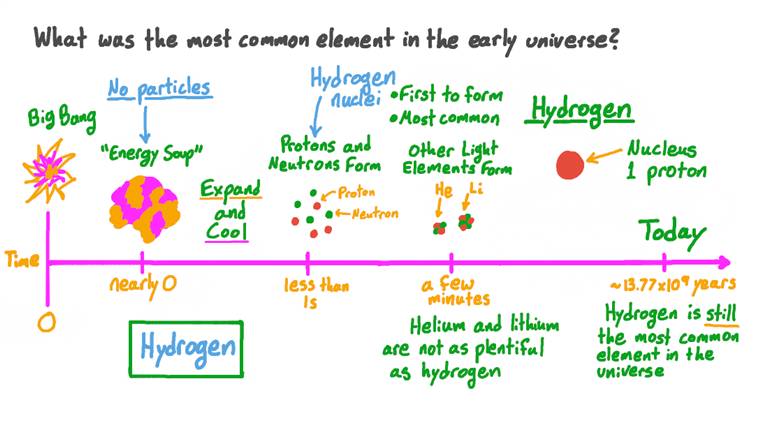 What was the most common element in the early universe?
Big Bang
No particles
"Energy Soup"
Expand
and
Cool
Hydrogen
nuclei
Protons and
Neutrons Form
Proton
Neutron
•First to form
•Most common
Other Light
Elements Form
He
Li
Hydrogen
Nucleus
1 proton
Today
Time
0
nearly 0
less than
1s
a few
minutes
~13.77x10⁹ years
Hydrogen
Helium and lithium
are not as plentiful
as hydrogen
Hydrogen is still
the most common
element in the
universe